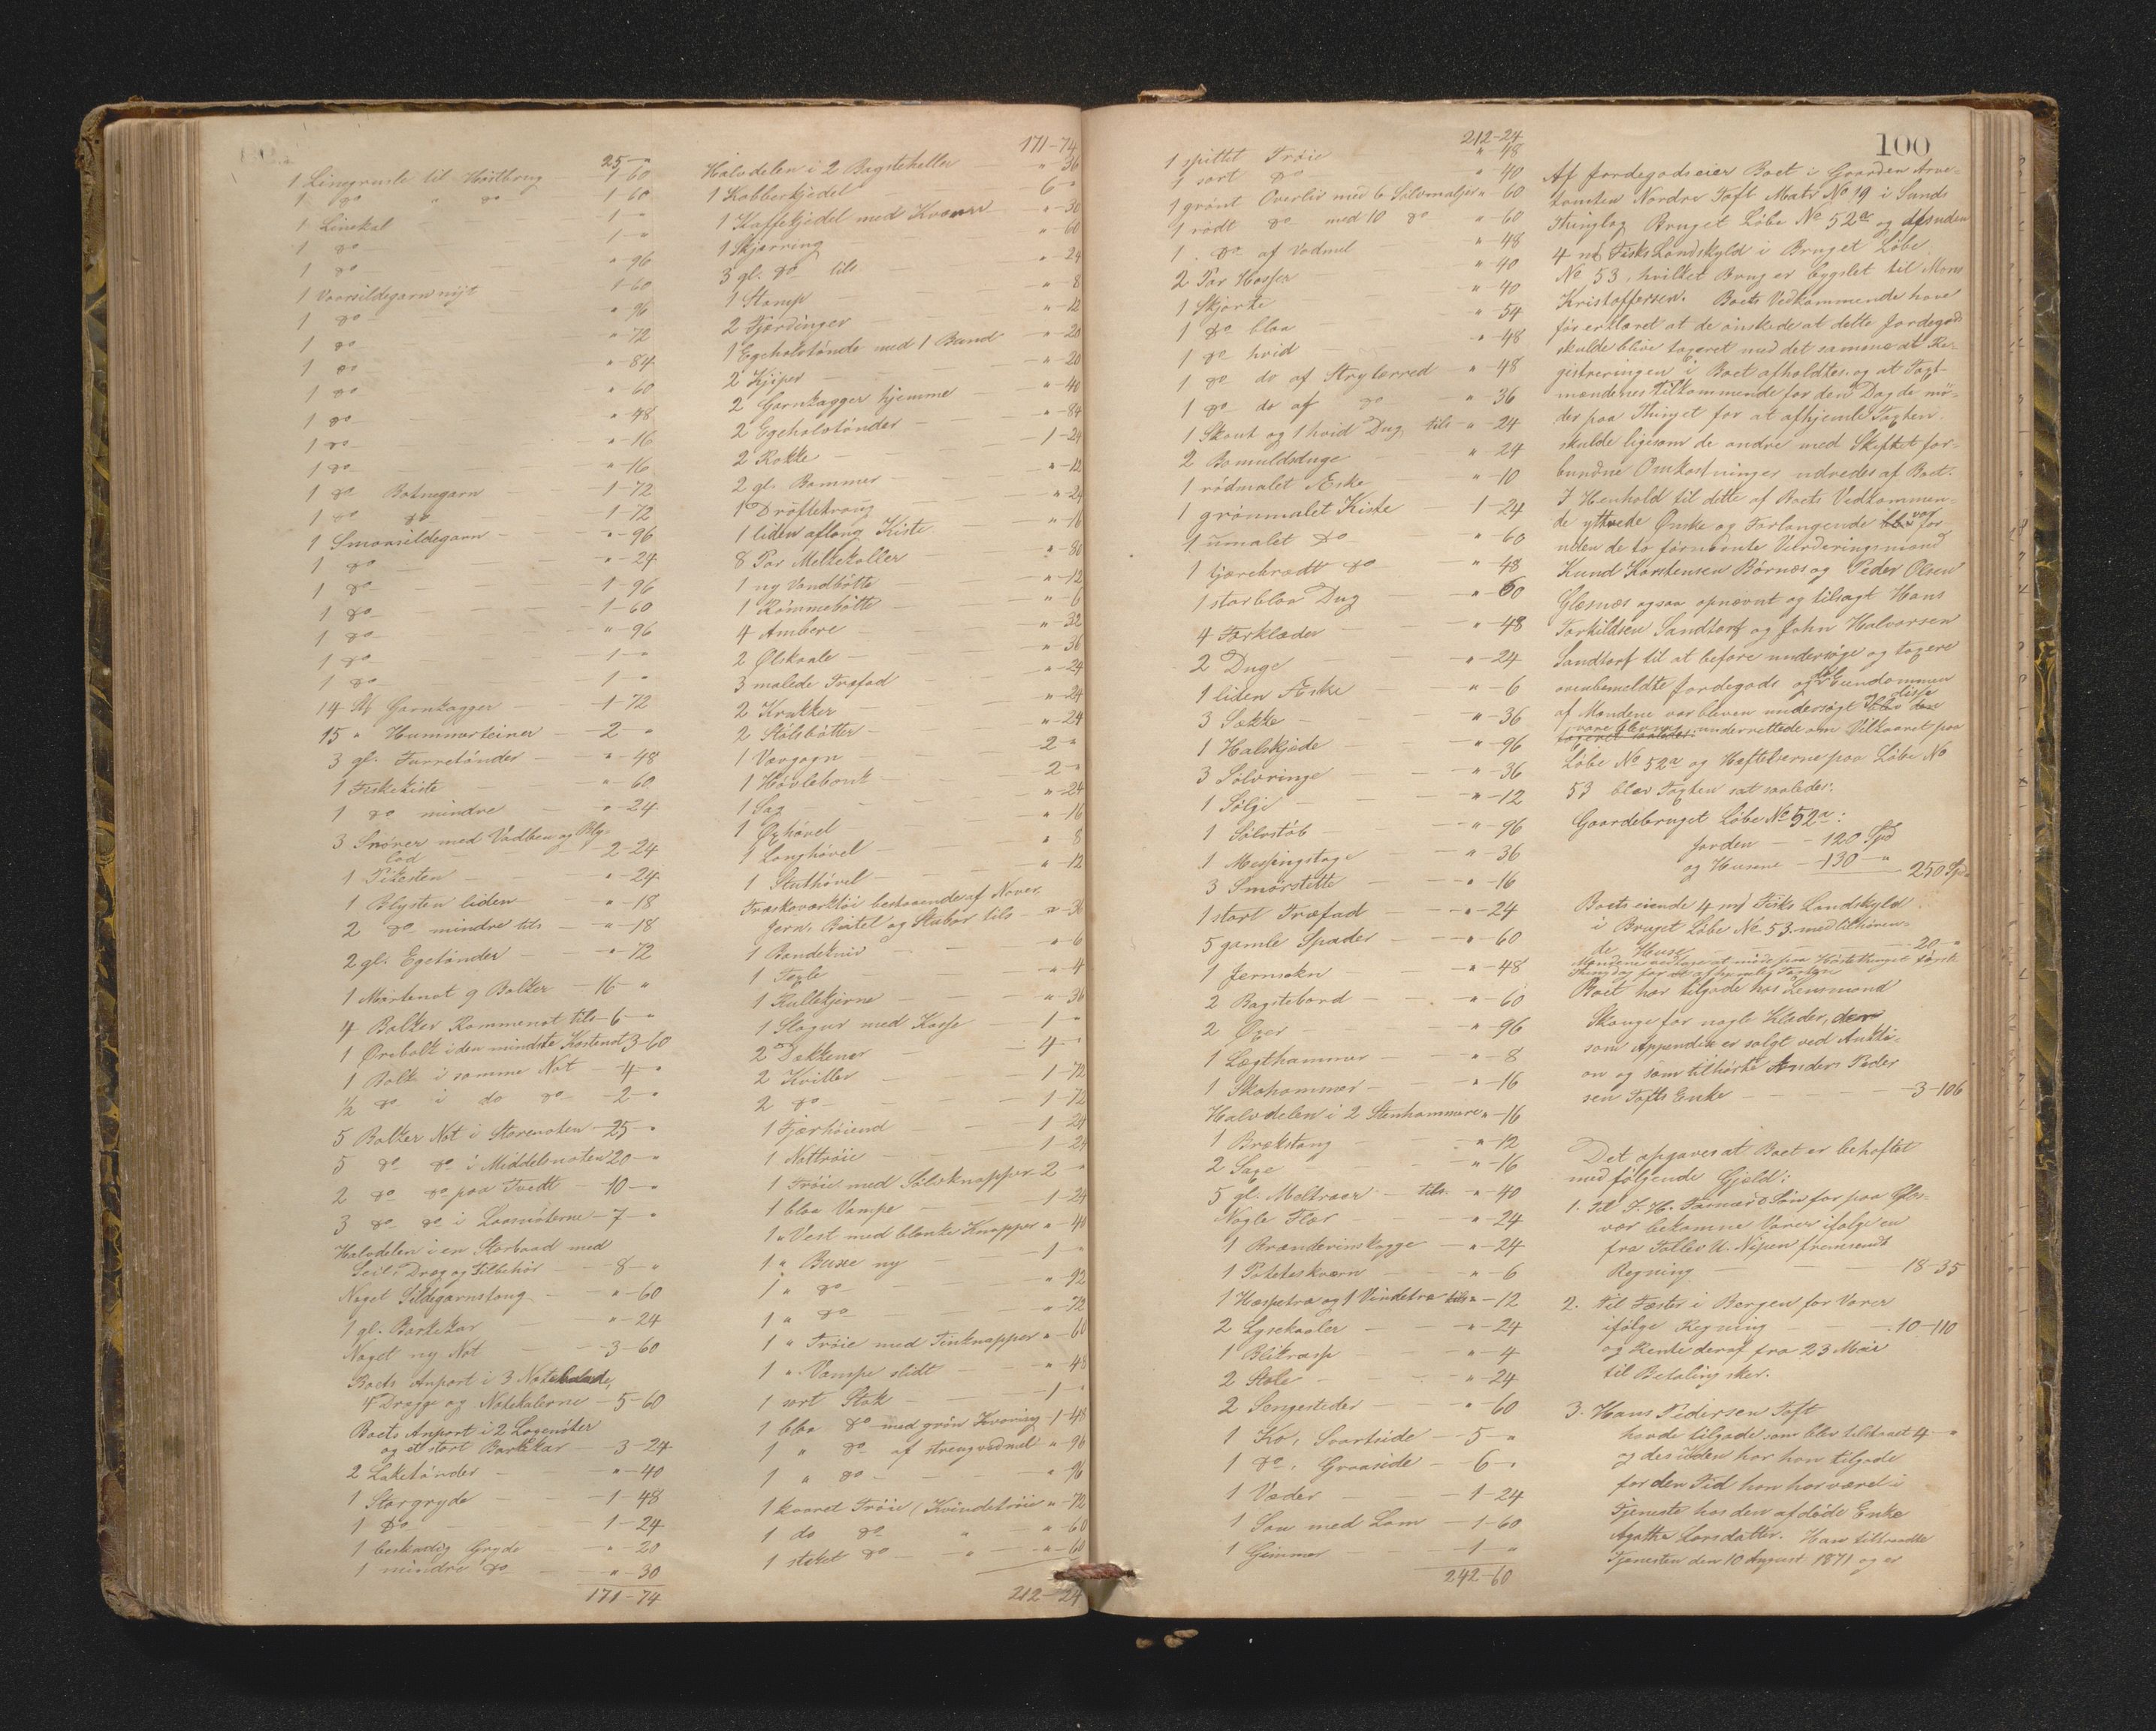 25 - "
1 Linegrunle til Høstbrug - 1-60
1 do " do - 1-60
1 Linekal - 1 - "
1 do - 1 - "
1 do - " - 96
1 Vaarsildegarn nyt - 1-60
1 do - " - 96
1 do - " - 72
1 do - " - 84
1 do - " - 60
1 do - " - 48
1 do - " - 16
1 do - " - 16
1 do Botnegarn - 1-72
1 do do - 1-72
1 Smaasildegarn - " - 96
1 do - " - 24
1 do - 1-96
1 do - 1-60
1 do - " - 96
1 do - 1 - "
1 do - 1 - "
14 St Garnkagger - 1-72
15 " Hummerteiner - 2 - "
3 gl. Furretønder - " - 48
1 Fiskekiste - " - 60
1 do mindre - " - 24
3 Snører med Vadben og Bly-
lod - 2-24
1 Pikesten - " - 24
1 Blysten liden - " - 18
2 do mindre tils - " - 18
2 gl. Egetønder - " - 72
1 Mørtenot 9 Bolker - 16 - "
4 Bolker Rammenot tils - 6 - "
1 Ørebolk i den mindste Kastenot 3-60
1 Bolk i samme Not - 4 - "
1/2 do i do do - 2 - "
5 Bolker Not i Storenoten - 25 - "
5 do do i Middelnoten 20 - "
2 do do paa Tvedt - 10 - "
3 do do i Laasnøterne - 7 - "
Halvdelen i en Storbaad med
Seil, Dræg og Tilbehør - 8 - "
Noget Sildegarnstoug - " - 60
1 gl. Barkekar - " - 24
Noget ny Not - 3-60
Boets Anpart i 3 Notebaade,
4 Drægge og Notekalerne - 5-60
Boets Anpart i 2 Lagenøter
og et stort Barkekar - 3-24
2 Laketønder - " - 40
1 Storgryde - 1-48
1 Do - 1-24
1 beskadig Gryde - " - 20
1 mindre do - " - 30
171-74
171-74
Halvdelen i 2 Bagsteheller " - 36
1 Kobberkjedel - 6 - "
1 Kaffekjedel med Kværn " - 30
1 Skjæring - " - 60
3 gl. do tils - " - 24
1 Stamp - " - 8
2 Fjærdinger - " - 12
1 Egeholstønde med 1 Bund " - 20
2 Kjiper - " - 20
2 Garnkagger hjemme - " - 40
2 Egeholstønder - " - 84
2 Rokke - 1-24
2 gl. Bommer - " - 12
1 Drøftetraug - " - 24
1 liden aflang Kiste - " - 16
8 Par Melkekoller - " - 80
1 ny Vandbøtte - " - 12
1 Rømmebøtte - " - 6
4 Ambere - " - 32
2 Ølskaale - " - 36
3 malede Træfad - " - 24
2 Krakker - " - 24
2 Stølsbøtter - " - 24
1 Vævgogn - 2 - "
1 Høvlebænk - 2 - "
1 Sag - " - 24
1 Øxhøvel - " - 16
1 Langhøvel - " 8
1 Sluthøvel - " - 12
Træskoværktøi bestaaende af Naver,
Jern, Beitel og Stabor tils - " - 36
1 Bandekniv - " - 6
1 Tegle - " - 4
1 Kullekjerne - " - 36
1 Slagur med Kasse - 1 - "
2 Dekkener - 4 - "
2 Kvitler - 1-72
2 do - 1-72
1 Fjærhøiend - 1-24
1 Nattrøie - 1-24
1 Trøie med Sølvknapper - 2 "
1 blaa Vampe - 1-24
1 " Vest med blanke Knapper " - 48
1 " Buxe ny - 1 - "
1 " do - " - 92
1 " do - " - 72
1 " Trøie med Tinknapper " - 60
1 " Vampe slidt - " - 48
1 sort Stak - 1 - "
1 blaa do med grøn Kvaring 1-48
1 " do af strengvadmel " - 96
1 " do - " - 96
1 kaaret Trøie (Kvindetrøie " - 72
1 do do " - " - 60
1 støket do " - " - 60
212-24
100
212-24
1 spittet Trøie " - 48
1 sort do " - 40
1 grønt Overliv med 6 Sølvmaljer " 60
1 rødt do med 10 do " - 60
1 do af Vadmel " - 48
2 Par Hoser " - 40
1 Skjorte " - 40
1 do blaa " - 54
1 do hvid " - 48
1 do do af Strylærred " - 48
1 do do af do " - 36
1 Skaut og 1 hvid Dug tils " - 24
2 Bomuldsduge " 24
1 rødmalet Æske " - 10
1 grønmalet Kiste - 1-24
1 umalet do " - 60
1 tjærebrædt do " - 48
1 stor blaa Dug " - 60
4 Forklæder " - 48
2 Duge " - 24
1 liden Æske " - 6
3 Sække " - 36
1 Halskjæde " - 96
3 Sølvringe " - 36
1 Sølgi " - 12
1 Sølvstøb " - 96
1 Messingstage " - 36
3 Smørstette " - 16
1 stort Træfad " - 24
5 gamle Spader " - 60
1 Jernsokn " - 48
2 Bagstebord " - 60
2 Øxer " - 96
1 Lægthammer " - 8
1 Skohammer " - 16
Halvdelen i 2 Stenhammere " - 16
1 Brækstang " - 12
2 Sage " - 16
5 gl. Meltraer tils " - 40
Nogle Flær " - 24
1 Brændevinskagge " - 24
1 Poteteskværn " - 6
1 Haspetræ og 1 Vindetræ tils " - 12
2 Lysekoaler " - 24
1 Blikrasp " - 4
2 Stole " - 24
2 Sengesteder " - 60
1 Ko, Svartside - 5 - "
1 do, Graaside - 6 - "
1 Væder - 1-24
1 Sau med Lam - 1-60
1 Gimmer - 1 - "
242-60
Af Jordegods eier Boet i Gaarden Arne-
tomten Nordre Toft Matr No 19 i Sunds
Thinglag Bruget Løbe No 52a og desuden
4 m/ Fisks Landskyld i Bruget Løbe
No 53, hvilket Brug er bygslet til Mons
Kristoffersen. Boets Vedkommende have
før erklæret at de ønskede at dette Jordegods
skulde blive taxeret med det samme at Re-
gistreringen i Boet afholdtes, og at Taxt-
mændenes Tilkommende for den Dag de mø-
der paa Thinget for at afhjemle Taxten
skulde ligesom de andre med Skiftet for-
bundne Omkostninger udredes af Boet.
I Henhold til dette af Boets Vedkommen-
de yttrede Ønske og Forlangende var for
uden de to førnævnte Vurderingsmænd
Knud Karstensen Børnæs og Peder Olsen
Glæsnæs ogsaa opnævnt og tilsagt Hans
Torkildsen Sandtorf og John Halvorsen
Sandtorf til at befare undersøge og taxere
ovenbemeldte Jordegods og da Eiendommen
af Mændene var bleven undersøgt og disse
vare blevne underrettede om Vilkaaret paa
Løbe No 52a og Heftelserne paa Løbe No
53 blev Taxten sat saaledes:
Gaardebruget Løbe No 52a:
Jorden - 120 Spd
og Husene - 130 - " 250 Spd
Boets eiende 4 m/ Fisks Landskyld
i Bruget Løbe No 53 med tilhøren-
de Huse - 20 - "
Mændene vedtage at møde paa Høstethinget første
Thingdag for at afhjemle Taxten
Boet har tilgode hos Lensmand
Skauge for nogle Klæder, der
som Appendix er solgt ved Aukti-
on og som tilhørte Anders Peder
sen Tofts Enke - 3-106
Det opgaves at Boet er beheftet
med følgende Gjæld:
1. Til F. H. Farnæs Søn for paa Glæs-
vær bekomne Varer ifølge en
fra Tollev U. Nipen fremsendt
Regning - 18-35
2. Til Fæster i Bergen for Varer
ifølge Regning - 10-110
og Rente deraf fra 23 Mai
til Betaling sker.
3. Hans Pedersen Toft
havde tilgode som blev tilstaaet 4 - "
og desuden har han tilgode
for den Tid han har været i
Tjeneste hos den afdøde Enke
Agathe Larsdatter. Han tiltraadte
Tjenesten den 10 August 1871 og er